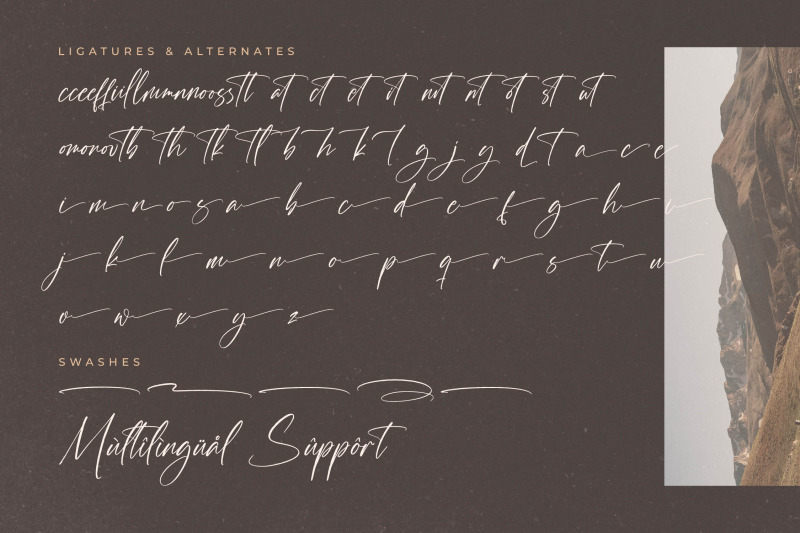 LIGATURES & ALTERNATES
cceeffiillrrumnnoossttl at ct et it nt rt ot st ut
omonovtb th tk tl b h k l g j y d T a c e
i m n o s a b c d e f g h i
j k l m n o p q r s t u
o w x y z
SWASHES
Mùltîlìngüål Sûppôrt